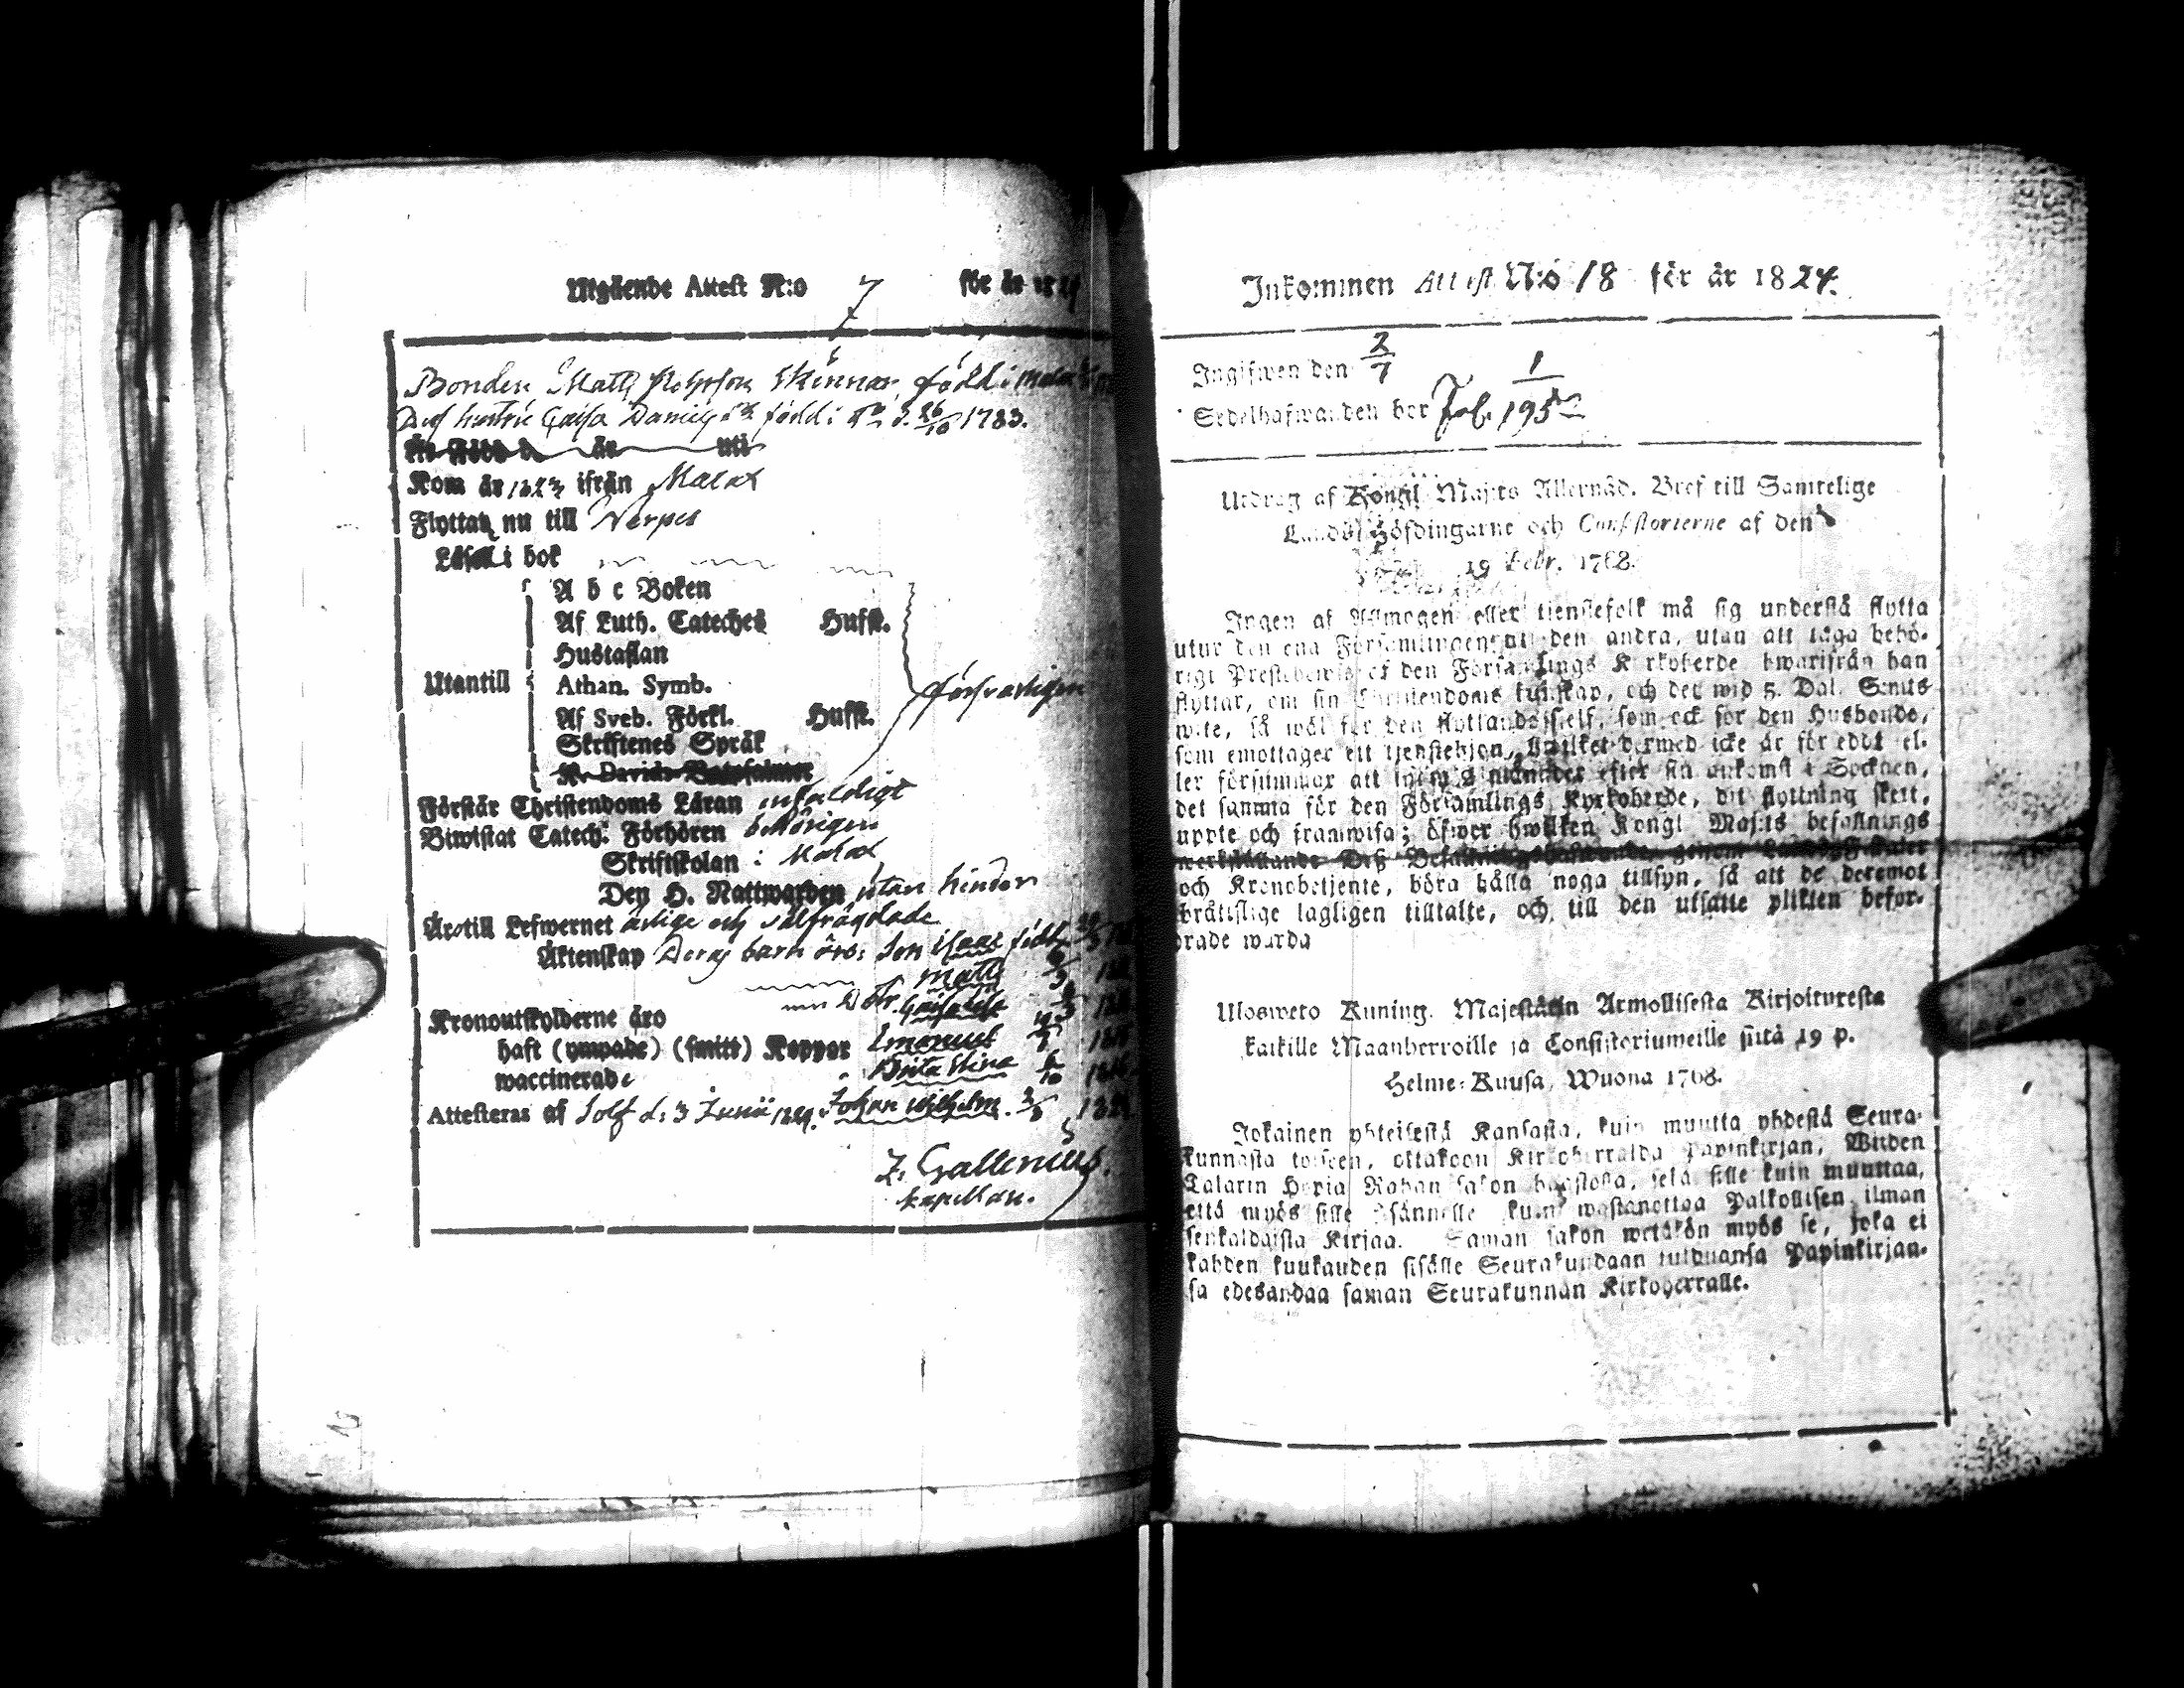 Utgående Attest N:o 7 för år 18
Bonden Matts Skinnar, född i Malax
Dess hustru Caisa Danielsdr född i do d. 26/10 1783.
Är Född d. år uti
Kom år 1823 ifrån Malax
Flyttar nu till Nerpes
Läser i bok
A b c Boken
Af Luth. Cateches Hufst.
Hustaflan
Utantill Athan. Symb. försvarligen
Af Sveb. Förkl. Hufst.
Skriftenes Språk
K. Davids Botpsalmer
Förstår Christendoms Läran enfaldigt
Biwistat Catech. Förhören behörigen
Skriftskolan i Malax
Den H. Nattwarden utan hinder
Äro till Lefwernet ärlige och välfrägdade
Äktenskap Deras barn äro: Son Isaac född
Matts
Dotr. Caisa Lisa
Kronoutskylderne äro
haft (ympade) (smitt) Koppor Emanuel
waccinerade Brita Stina 6/10
Attesteras af Solf d. 3 Junii 1824. Johan Wilhelm
Z. Gallenius.
kapellan.
Inkommen Attest N:o 18 för år 1824.
Ingifwen den 2/7
Sedelhafwanden bor Fol. 195
Utdrag af Kongl. Maj:ts Allernåd. Bref till Samtelige
Lands-Höfdingarne och Consistorierne af den
19 Febr. 1768.
Ingen af Allmogen eller tienstefolk må sig understå flytta
utur den ena Församlingen till den andra, utan att taga behö-
rigt Prestebewis af den Församlings Kyrkoherde hwarifrån han
flyttar, om sin Christendoms kunskap, och det wid 5. Dal. S:mts
wite, så wäl för den flyttande sjelf, som ock för den Husbonde,
som emottager ett tjenstehjon, hwilket dermed icke är föreddt el-
ler försummar att inom 2 månader efter sin ankomst i Socknen,
det samma för den Församlings Kyrkoherde, dit flyttning skett,
uppte och framwisa; öfwer hwilken Kongl. Maj:ts befallnings
werkställande Deß Befallningshafwande, genom
och Kronobetjente, böra hålla noga tillsyn, så att de deremot
bråttslige lagligen tilltalte, och till den utsatte plikten befor-
drade warda
Ulosweto Kuning. Majestätin Armollisesta Kirjoituresta
kaikille Maanherroille ja Consistoriumeille siitä 19 p.
Helme-Kuusa, Wuona 1768.
Jokainen yhteisestä Kansasta, kuin muutta yhdestä Seura-
kunnasta toiseen, ottakoon Kirkoherralda Papinkirjan, Wiiden
Talarin Hopia Rahan sakon haastolla, sekä sille kuin muuttaa,
että myös sille Isännälle kuin wastanottaa Palkollisen ilman
senkaldaista Kirjaa. Saman sakon wetäkön myös se, joka ei
kahden kuukauden sisälle Seurakundaan tulduansa Papinkirjan-
sa edesandaa saman Seurakunnan Kirkoherralle.